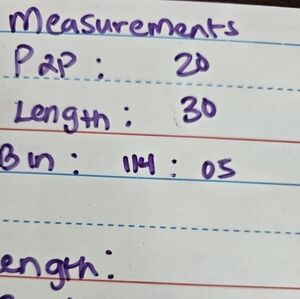 Measurements
P2P: 20
Length: 30
Bin: 114: 05
ength: